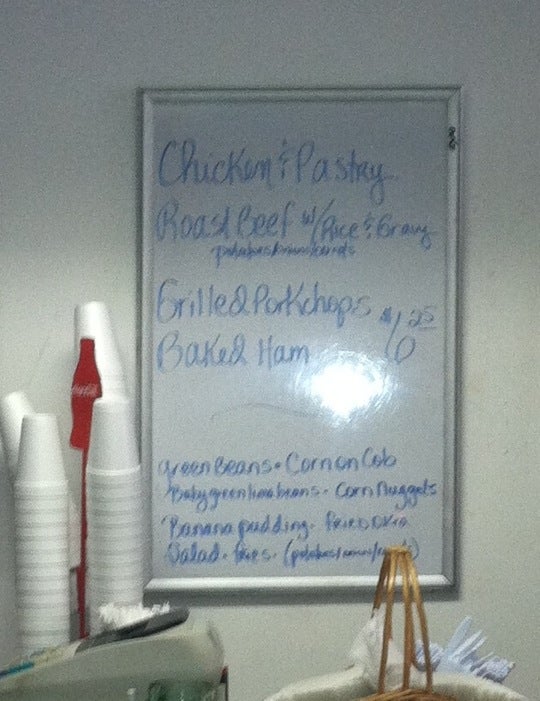 Chicken & Pastry
Roast Beef w/Rice & Gravy
potatoes/onions/carrots
Grilled Porkchops
Baked Ham
$6.25
green Beans • Corn on Cob
Baby green lima beans • Corn Nuggets
Banana pudding • fried okra
Salad • fries • (potatoes/onions/carrots)
Coca-Cola